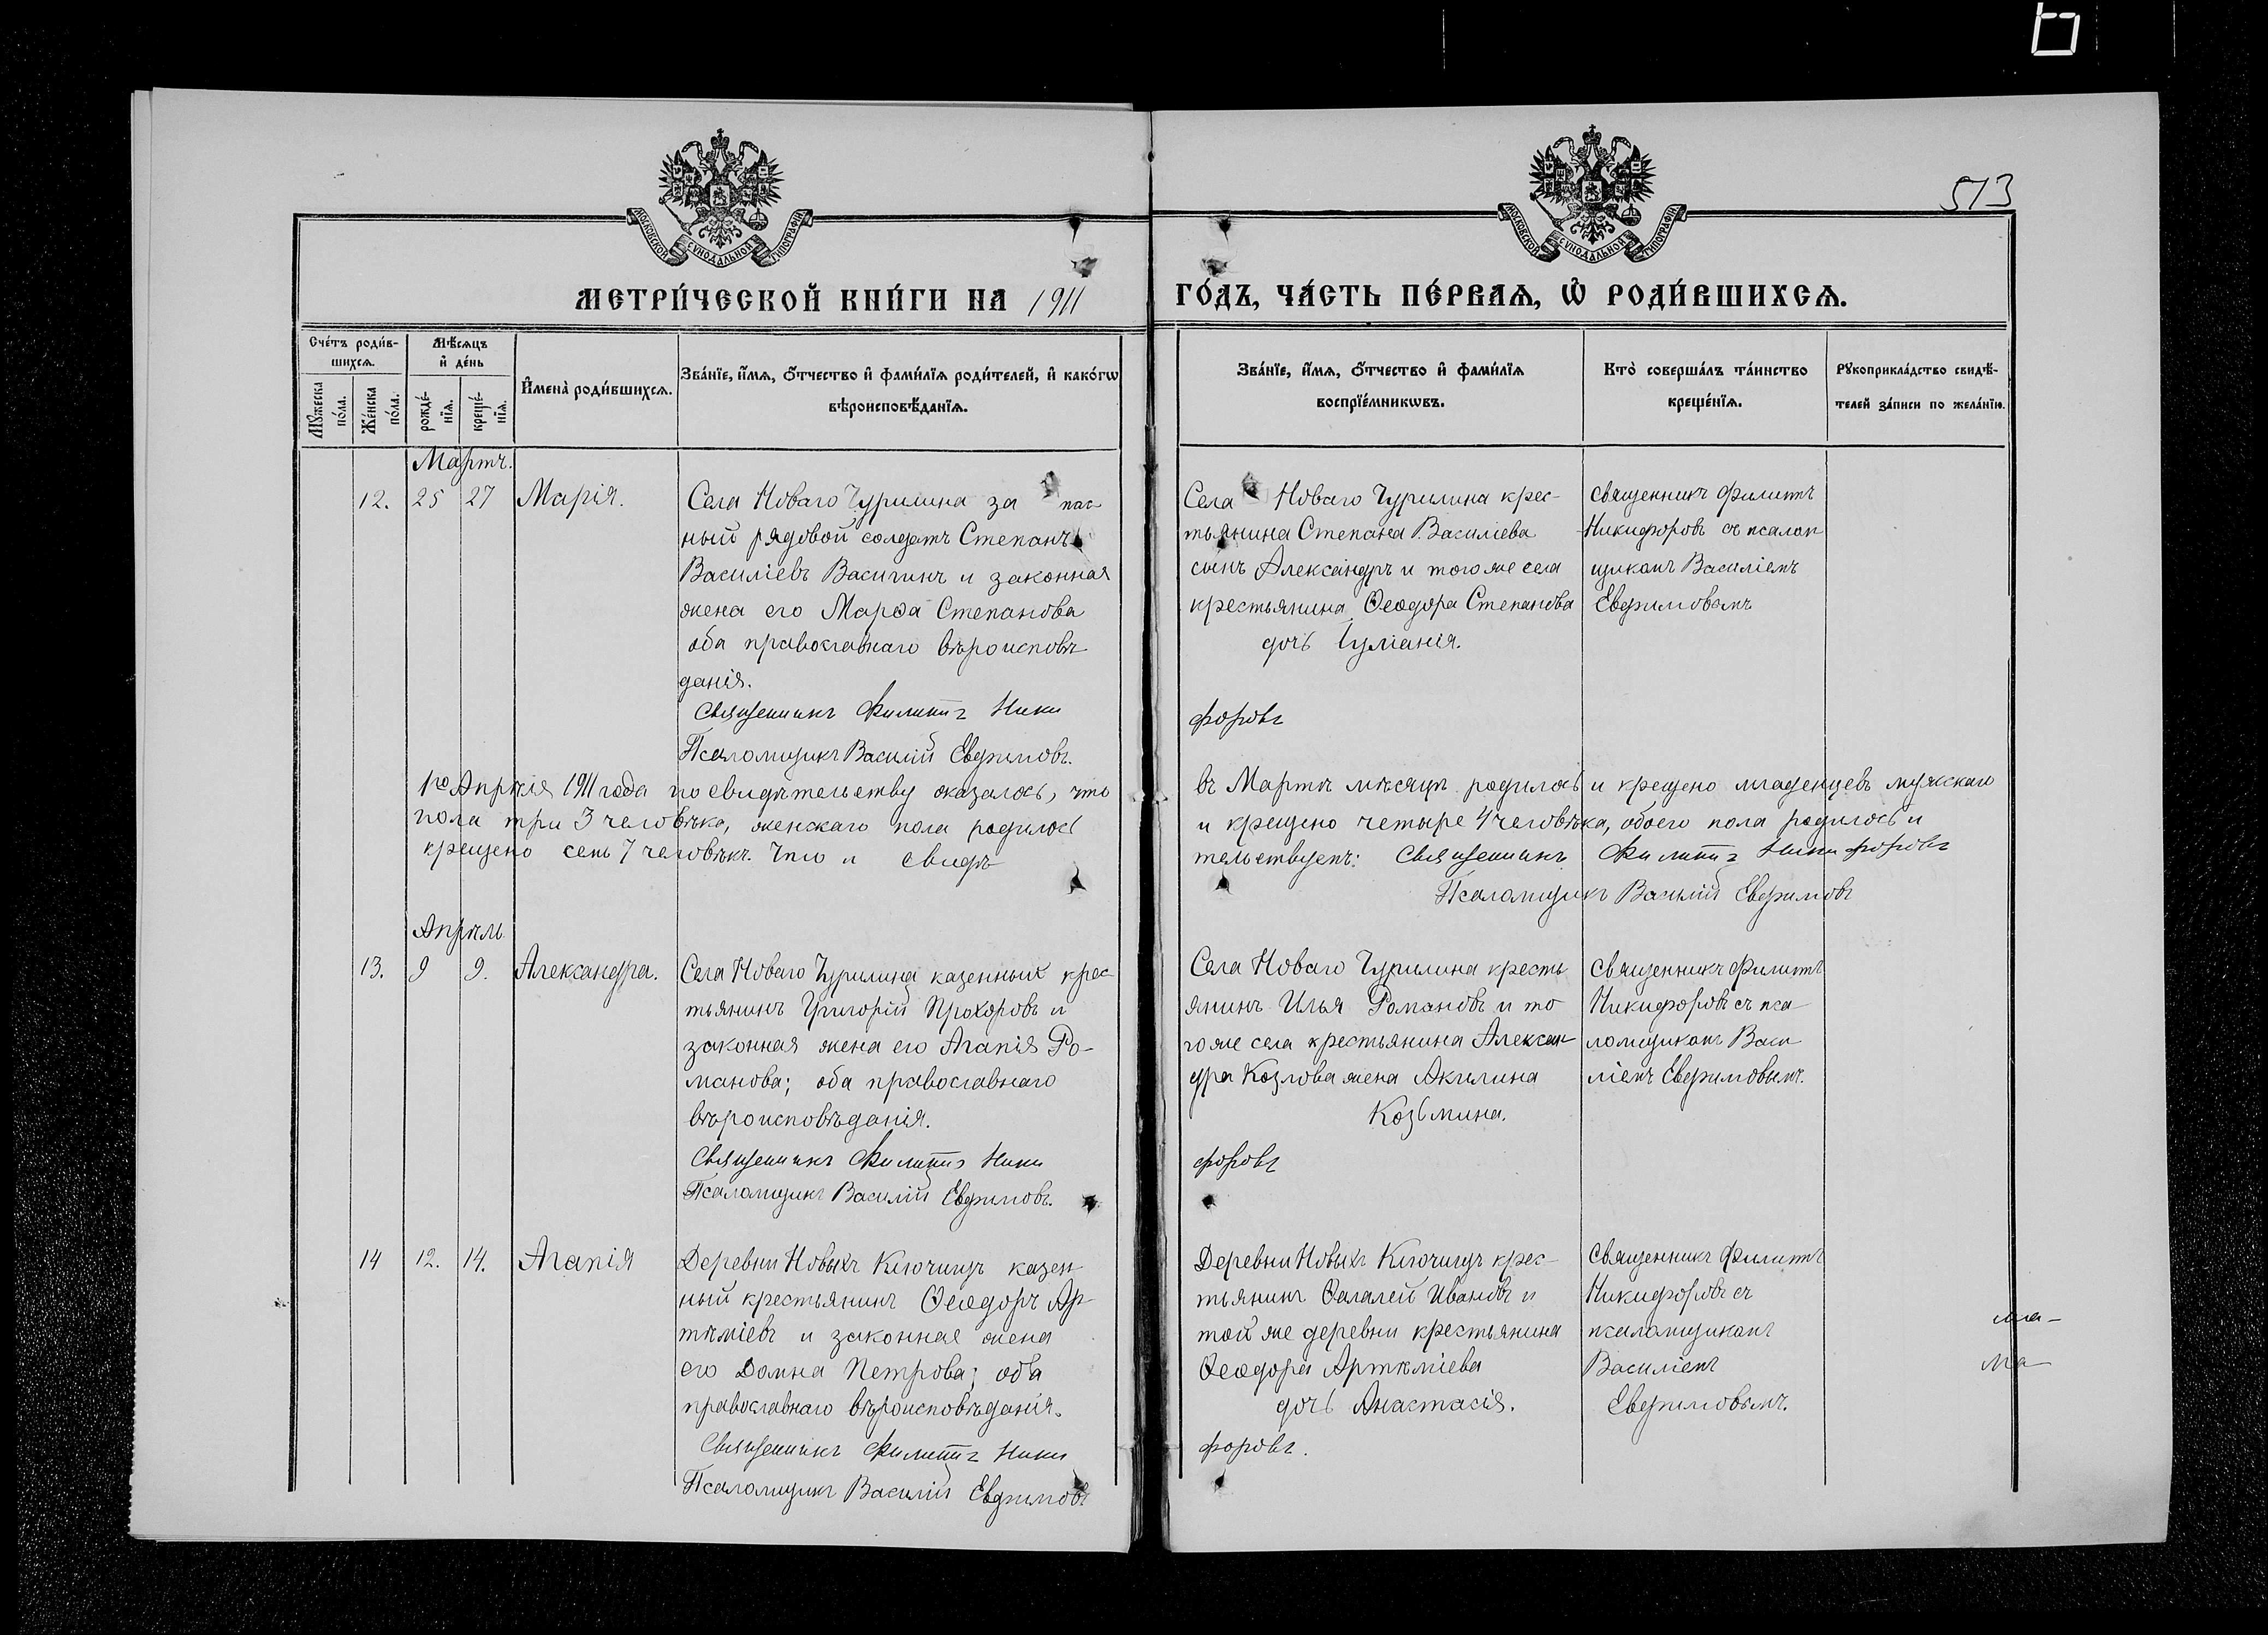 513
МОСКОВСКОЙ СУНОДАЛЬНОЙ ТИПОГРАФІИ
МОСКОВСКОЙ СУНОДАЛЬНОЙ ТИПОГРАФІИ
МЕТРИ́ЧЕСКОЙ КНИ́ГИ НА 1911
ГО́ДЪ, ЧА́СТЬ ПЕ́РВАѦ, Ѡ҆ РОДИ́ВШИХСѦ.
Сче́тъ роди́в-
шихсѧ.
Мꙋ́жеска по́ла.
Же́нска по́ла.
Мѣ́сѧцъ
и҆ де́нь
рожде́-
нїѧ.
креще́-
нїѧ.
И҆мена̀ роди́вшихсѧ.
Зва́нїе, и҆́мѧ, ѻ҆́тчество и҆ фами́лїѧ роди́телей, и҆ како́гѡ
вѣроисповѣ́данїѧ.
Зва́нїе, и҆́мѧ, ѻ҆́тчество и҆ фами́лїѧ
воспрїе́мникѡвъ.
Кто̀ соверша́лъ та́инство
креще́нїѧ.
Рꙋкоприкла́дство свидѣ́-
телей за́писи по жела́нїю.
Мартъ.
12. 25 27 Марія.
Села Новаго Чурилина запас
ный рядовой солдатъ Степанъ
Василіевъ Васигинъ и законная
жена его Марѳа Степанова
оба православнаго вѣроисповѣ
данія.
Священникъ Филиппъ Ники
Псаломщикъ Василій Евфимовъ.
Села Новаго Чурилина крес-
тьянина Степана Василіева
сынъ Александръ и того же села
крестьянина Ѳеодора Степанова
дочь Іуліанія.
форовъ
Священникъ Филиппъ
Никифоровъ съ псалом
щикомъ Василіемъ
Евфимовымъ
1го Апрѣля 1911 года по свидѣтельству оказалось, что въ Мартѣ мѣсяцѣ родилось и крещено младенцевъ мужскаго
пола три 3 человѣка, женскаго пола родилось и крещено четыре 4 человѣка, обоего пола родилось и
крещено семь 7 человѣкъ. Что и свидѣтельствуемъ: Священникъ Филиппъ Никифоровъ
Псаломщикъ Василій Евфимовъ
Апрѣль
13. 9 9. Александра.
Села Новаго Чурилина казенный крес
тьянинъ Григорій Прохоровъ и
законная жена его Агапія Ро-
манова; оба православнаго
вѣроисповѣданія.
Священникъ Филиппъ Ники
Псаломщикъ Василій Евфимовъ.
Села Новаго Чурилина кресть
янинъ Илья Романовъ и то
го же села крестьянина Алексан
дра Козлова жена Акилина
Козьмина.
форовъ
Священникъ Филиппъ
Никифоровъ съ пса
ломщикомъ Васи
ліемъ Евфимовымъ.
14 12. 14. Агапія
Деревни Новыхъ Ключищъ казен
ный крестьянинъ Ѳеодоръ Ар
тѣміевъ и законная жена
его Домна Петрова; оба
православнаго вѣроисповѣданія.
Священникъ Филиппъ Ники
Псаломщикъ Василій Евфимовъ
Деревни Новыхъ Ключищъ крес-
тьянинъ Ѳалалей Ивановъ и
той же деревни крестьянина
Ѳеодора Артѣміева
дочь Анастасія.
форовъ.
Священникъ Филиппъ
Никифоровъ съ
псаломщикомъ
Василіемъ
Евфимовымъ.
ма-